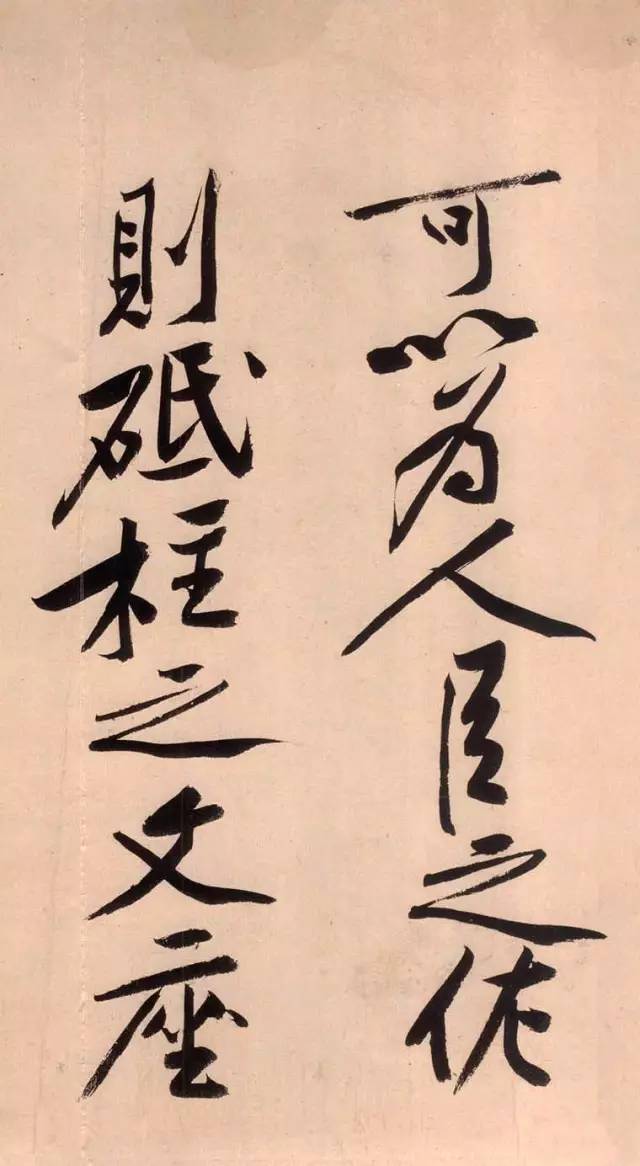 可以為人臣之佐
則砥柱之文座